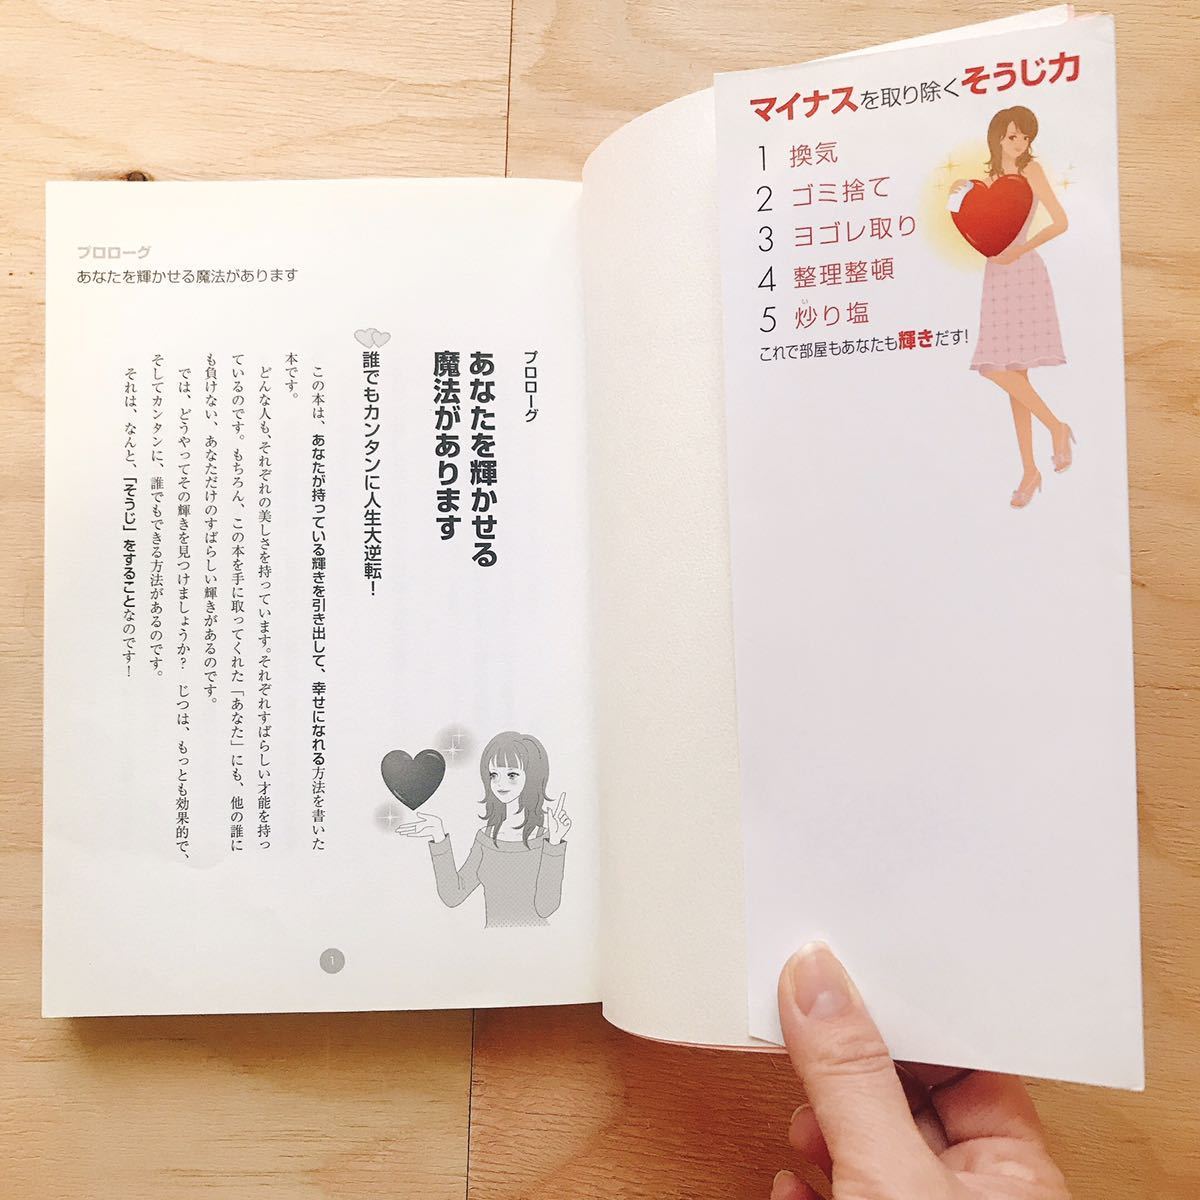 プロローグ
あなたを輝かせる魔法があります
プロローグ
あなたを輝かせる
魔法があります
誰でもカンタンに人生大逆転！
この本は、あなたが持っている輝きを引き出して、幸せになれる方法を書いた
本です。
どんな人も、それぞれの美しさを持っています。それぞれすばらしい才能を持っ
ているのです。もちろん、この本を手に取ってくれた「あなた」にも、他の誰に
も負けない、あなただけのすばらしい輝きがあるのです。
では、どうやってその輝きを見つけましょうか？　じつは、もっとも効果的で、
そしてカンタンに、誰でもできる方法があるのです。
それは、なんと、「そうじ」をすることなのです！
1
マイナスを取り除くそうじ力
1 換気
2 ゴミ捨て
3 ヨゴレ取り
4 整理整頓
い
5 炒り塩
これで部屋もあなたも輝きだす！